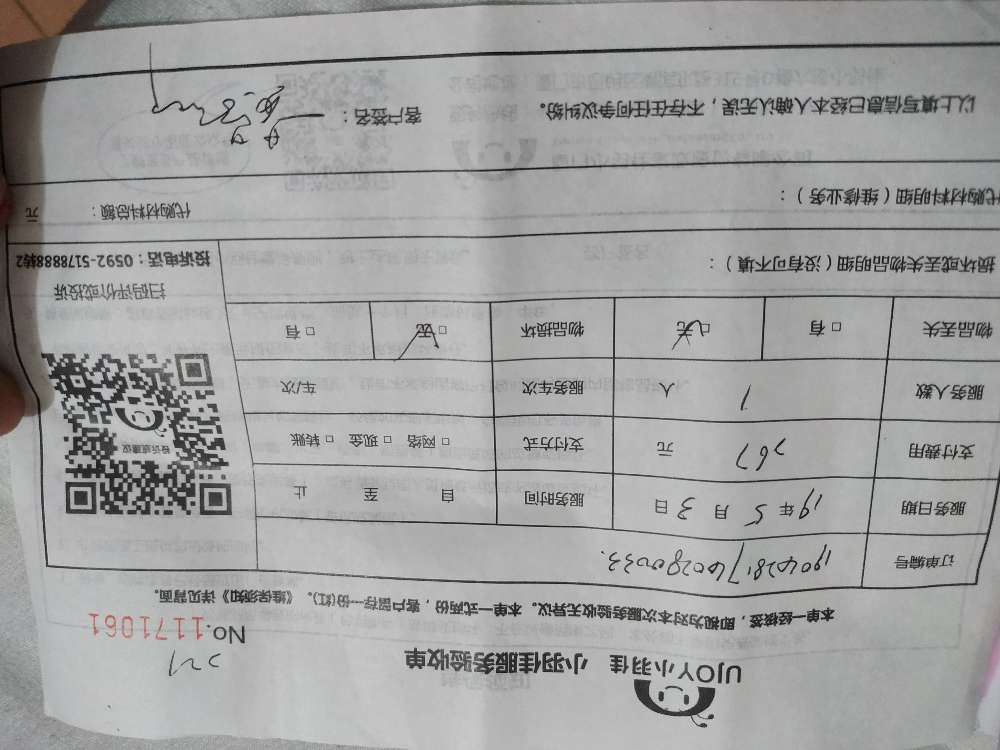 UJOY小羽佳 小羽佳服务验收单
No.1171061
本单一经核签,即视为对本次服务验收无异议。本单一式两份,客户留存一份(红)。《维保须知》详见背面。
订单编号
服务日期 19年5月3日 服务时间 自 至 止
支付费用 767 元 支付方式 □ 网络 □ 现金 □ 转账
服务人数 1 人 服务车次 车/次
物品丢失 □ 有 □ 无 物品损坏 □ 无 □ 有
投诉或建议
扫码评价或投诉
投诉电话:0592-5178888转2
损坏或丢失物品明细(没有可不填):
代购材料明细(维修业务):
代购材料总额: 元
以上填写信息已经本人确认无误,不存在任何争议纠纷。 客户签名: